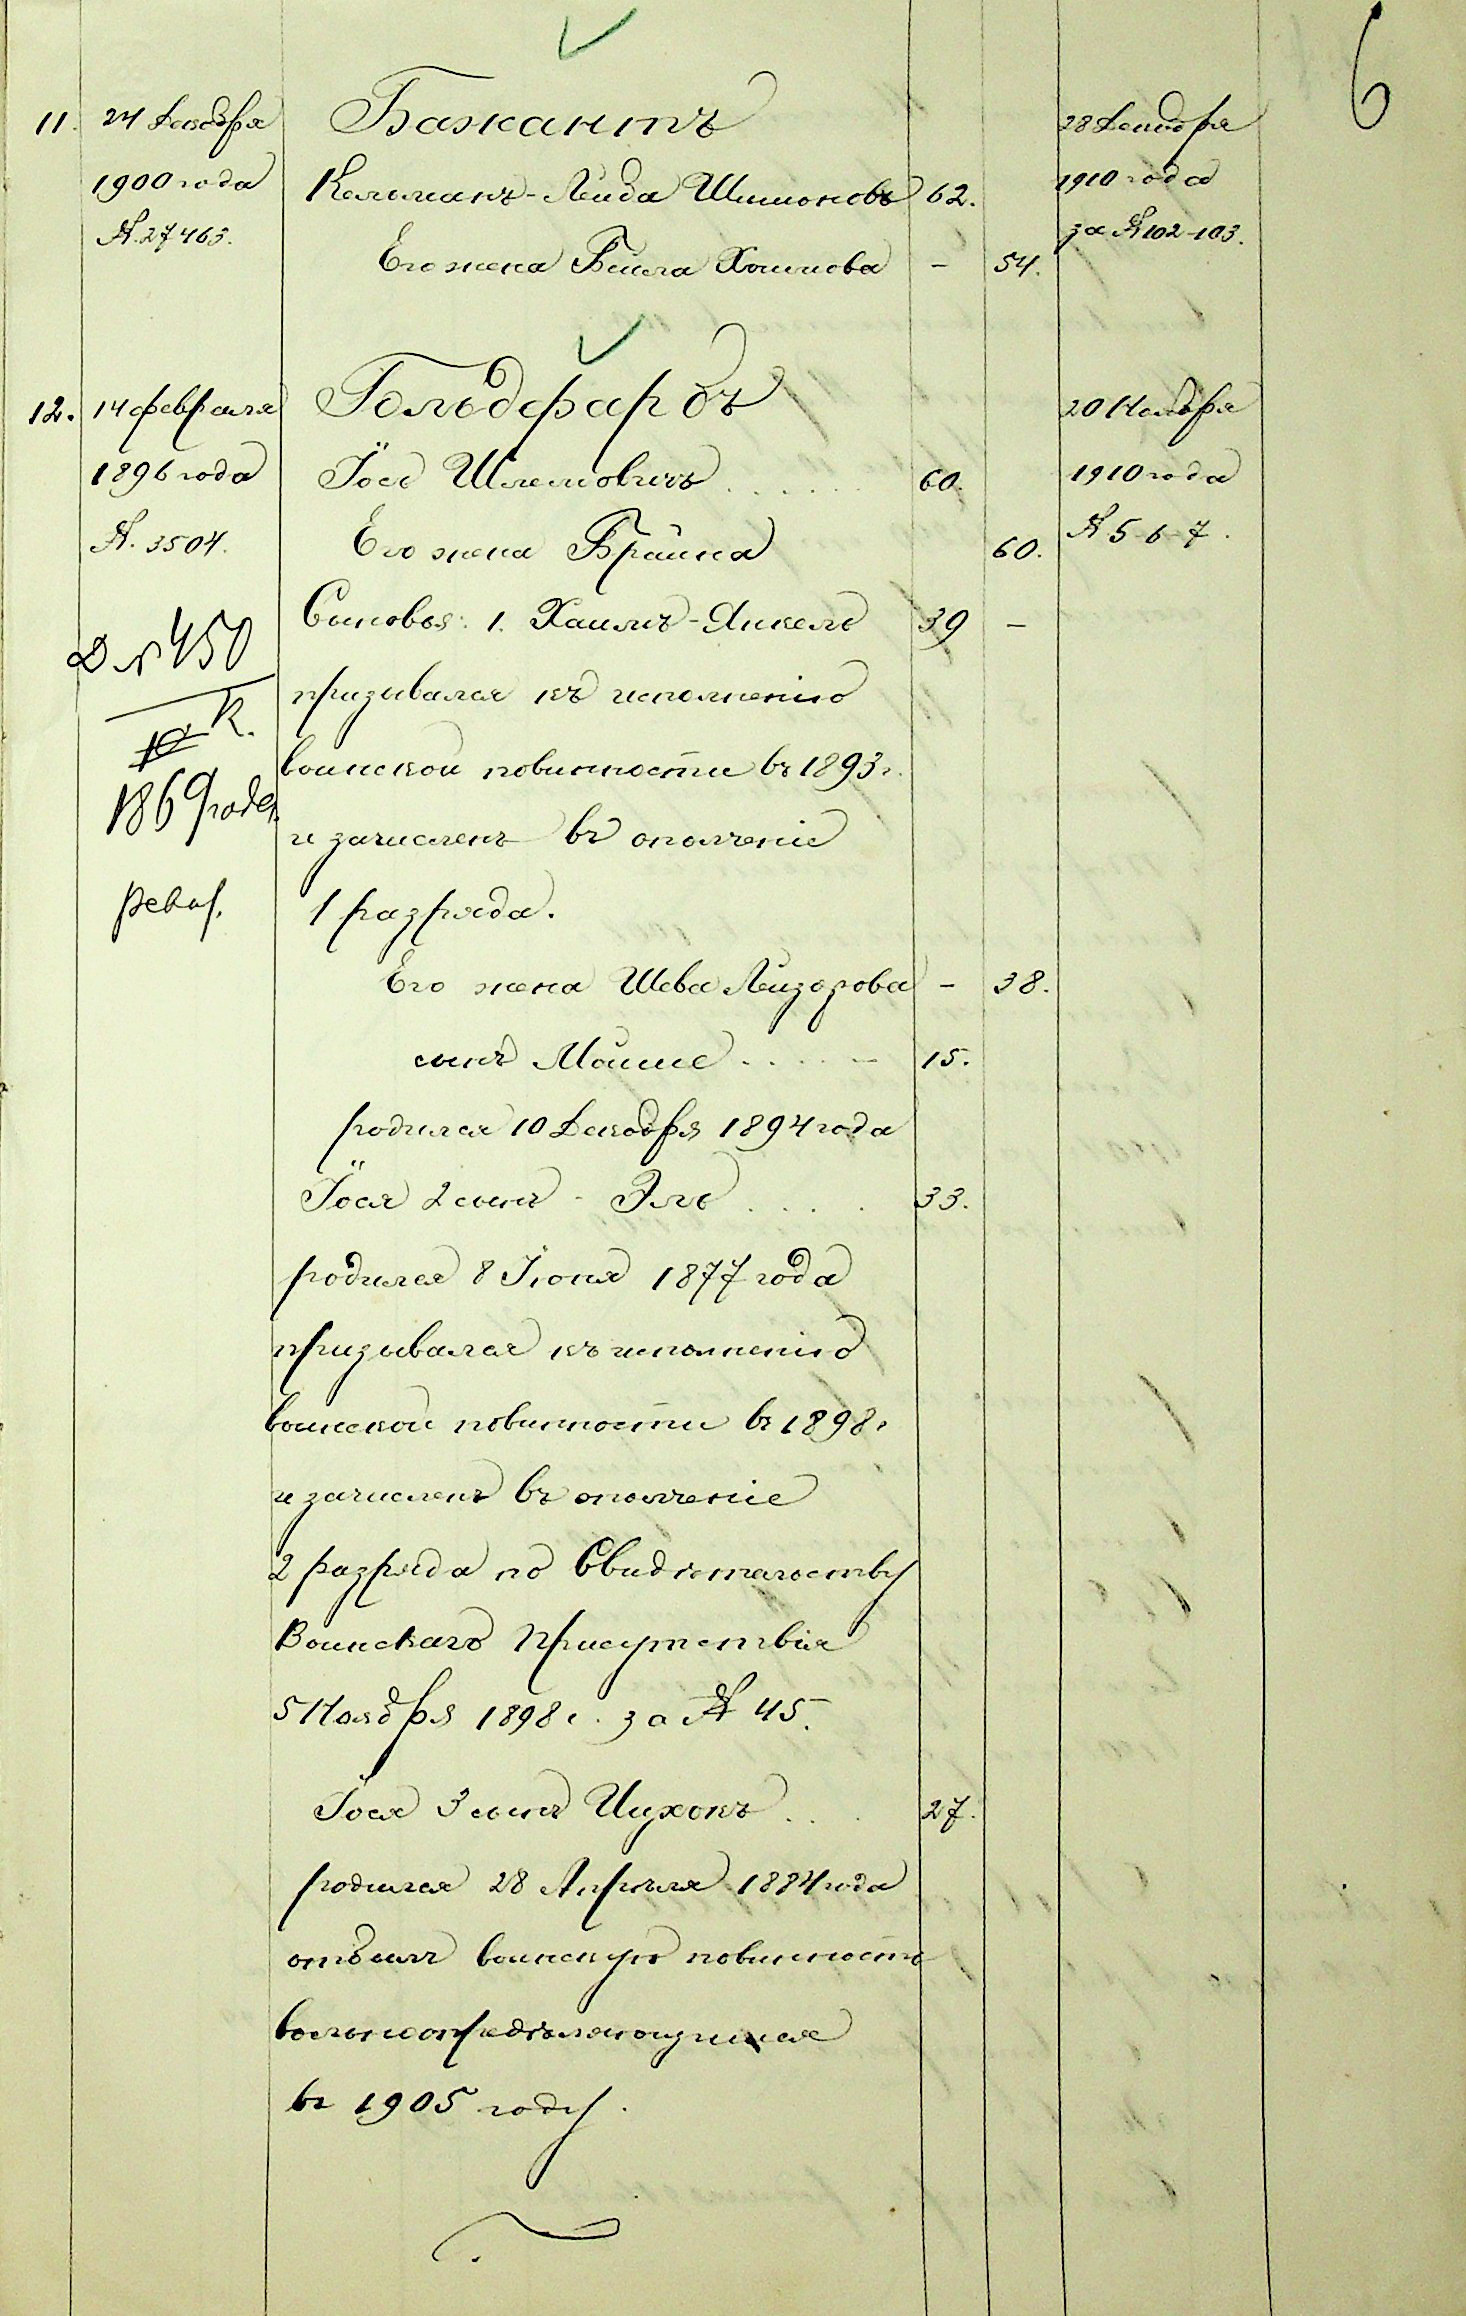 6
11. 24 Декабря Бажантъ 28 Декабря
1900 года Кельманъ-Лейба Шимоновъ 62. 1910 года
№ 27463. за № 102-103.
Его жена Бейла Хаимова - 54.
12. 14 февраля Гольдфарбъ 20 Ноября
1896 года Іосъ Шлемовичъ 60. 1910 года
№. 3504. Его жена Брайна 60. № 5-6-7.
Сыновья: 1. Хаимъ-Янкель 39 -
№ 450
призывался къ исполненію
К.
воинской повинности въ 1893 г.
1869 года
и зачисленъ въ ополченіе
1 разряда.
Его жена Шева Лейзорова - 38.
сынъ Мойше 15.
родился 10 Декабря 1894 года
Іося 2 сынъ - Эль 33.
родился 8 Іюня 1877 года
призывался къ исполненію
воинской повинности въ 1898 г
и зачисленъ въ ополченіе
2 разряда по Свидѣтельству
Воинскаго Присутствія
5 Ноября 1898 г. за № 45.
Іося 3 сынъ Ицхокъ 27.
родился 28 Апрѣля 1884 года
отбылъ воинскую повинность
вольноопредѣляющимся
въ 1905 году.